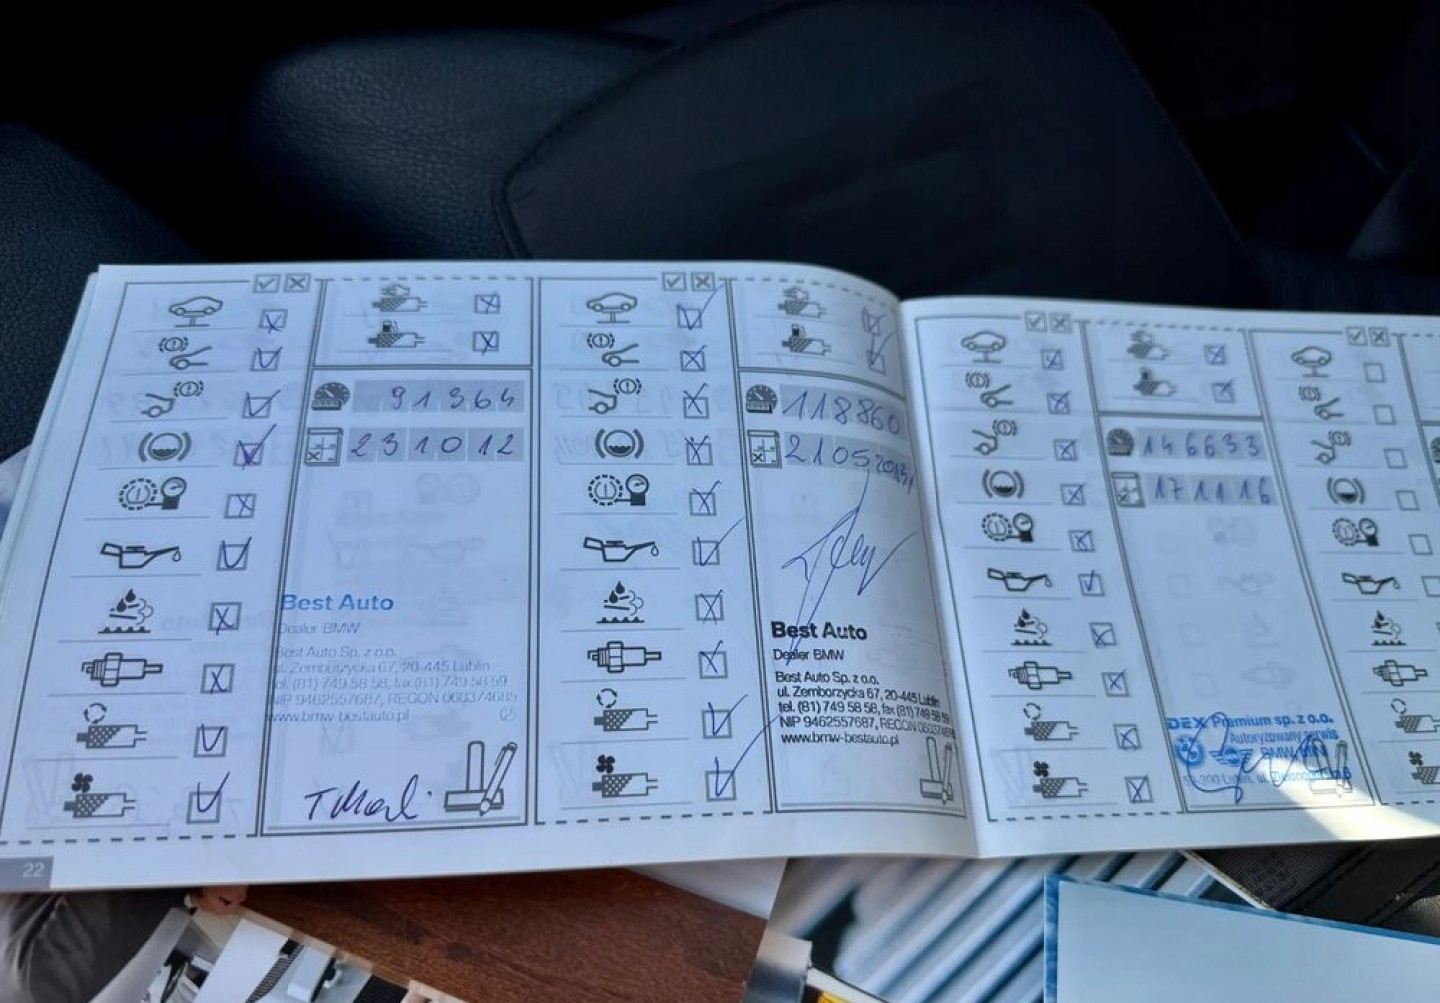 91364
231012
Best Auto
Dealer BMW
Best Auto Sp. z o.o.
ul. Zemborzycka 67, 20-445 Lublin
tel. (81) 749 58 58, fax (81) 749 58 59
NIP 9462557687, REGON 060374685
www.bmw-bestauto.pl
22
118860
21052013
Best Auto
Dealer BMW
Best Auto Sp. z o.o.
ul. Zemborzycka 67, 20-445 Lublin
tel. (81) 749 58 58, fax (81) 749 58 59
NIP 9462557687, REGON
www.bmw-bestauto.pl
146633
171116
DEX Premium sp. z o.o.
Autoryzowany serwis
BMW, MINI
Lublin, ul.